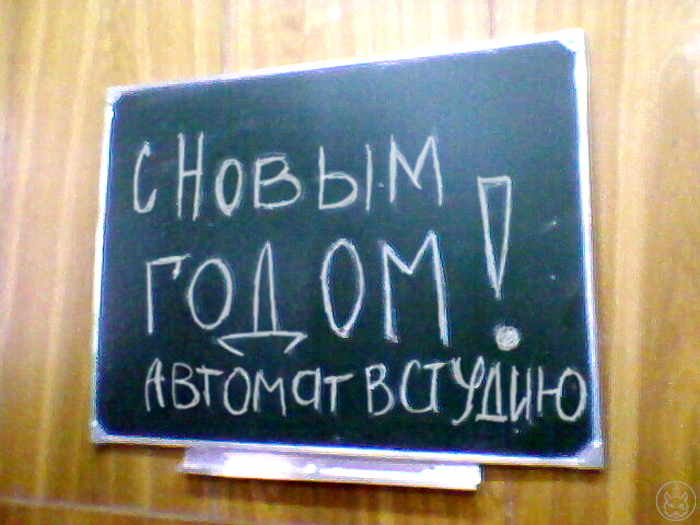 С НОВЫМ
ГОДОМ!
АВТОМАТ В СТУДИЮ